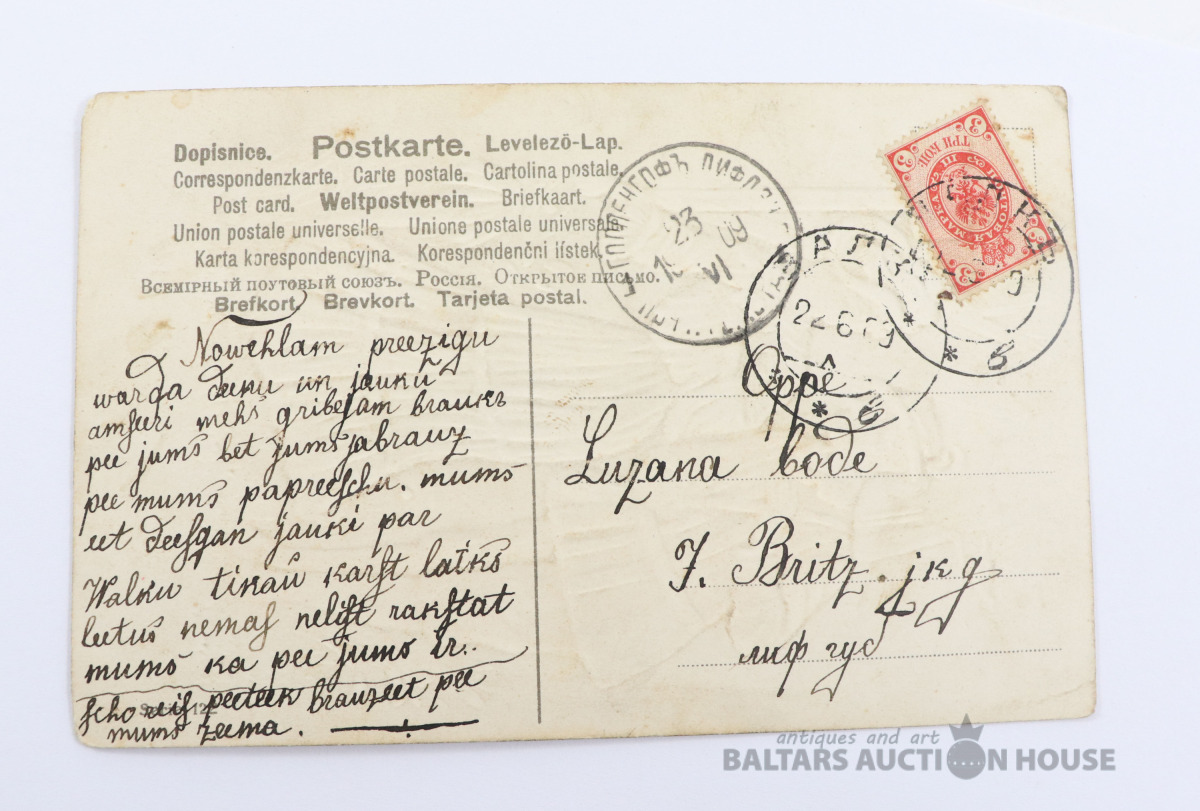 Dopisnice. Postkarte. Levelező-Lap.
Correspondenzkarte. Carte postale. Cartolina postale.
Post card. Weltpostverein. Briefkaart.
Union postale universelle. Unione postale universale
Karta korespondencyjna. Korespondenčni listek.
Всемірный почтовый союзъ. Россія. Открытое письмо.
Brefkort. Brevkort. Tarjeta postal.
Nowehlam preezigu
warda deenu un jauku
amseri mehs gribejam braukt
pee jums bet jums jabrauz
pee mums papreeschu. mums
eet deesgan jauki par
Walku tikau karst laiks
leetus nemas nelist rakstat
mums ka pee jums ir.
scho reis peeteek brauzeet pee
mums zeema.
ТРИ КОП.
3
3
3
23
VI
09
ВАЛКЪ
22 6 09
Oppe
Luzana bode
J. Britz. jkg
лиф губ
antiques and art
BALTARS AUCTION HOUSE